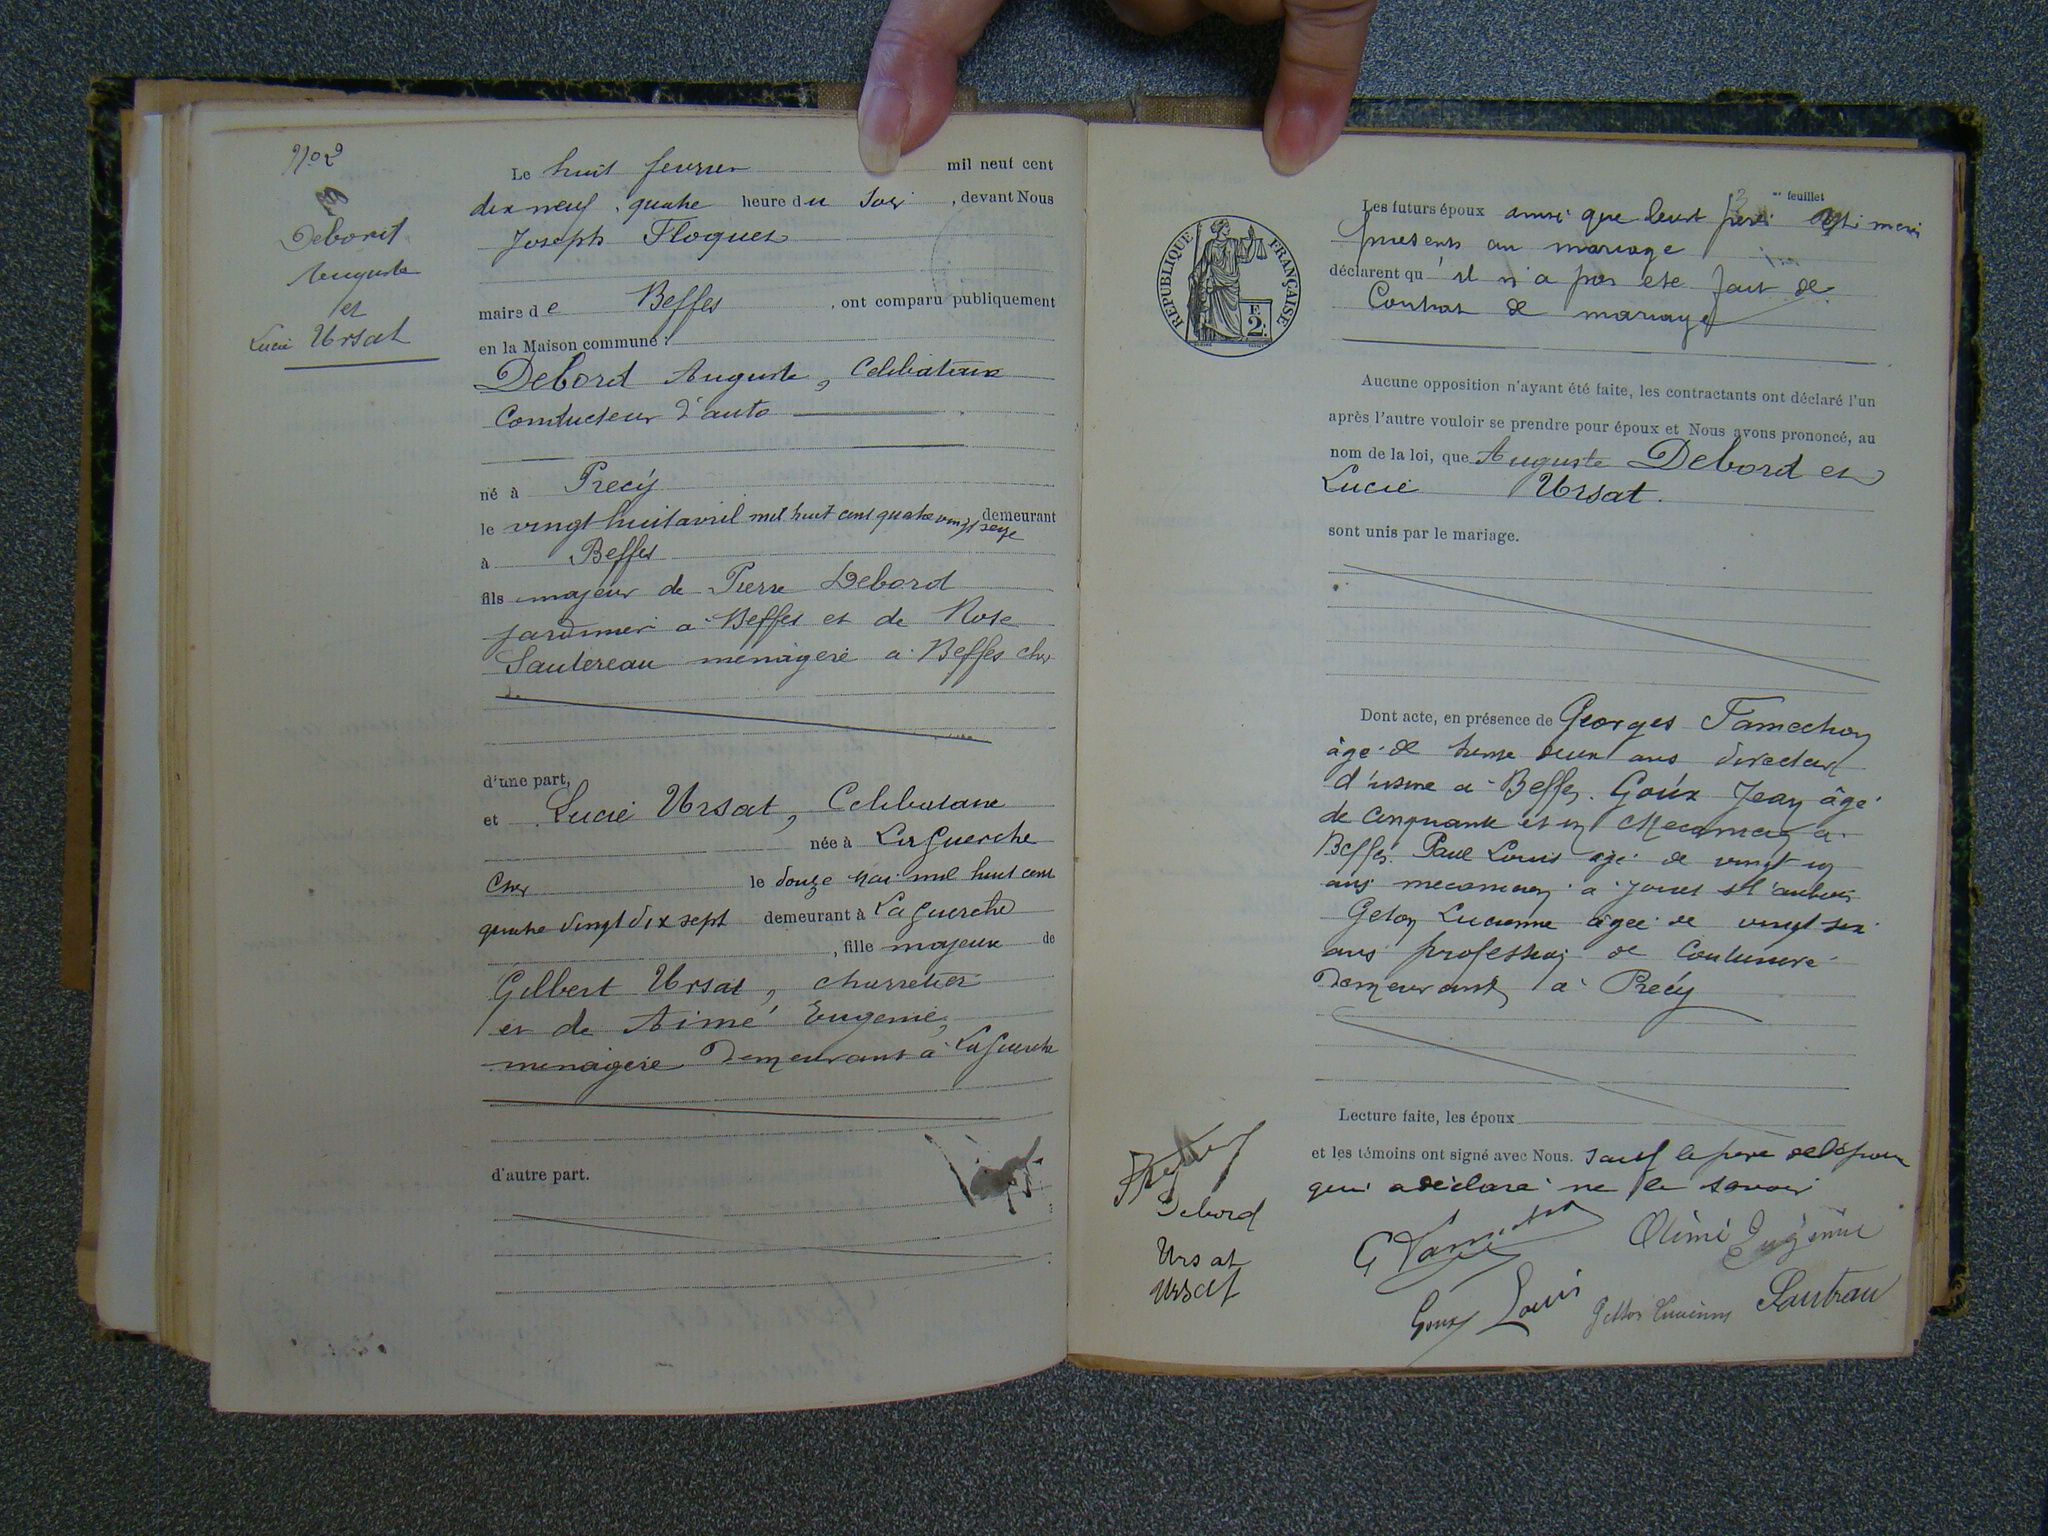 No 2
Debord
Auguste
et
Lucie Ursat
Le huit fevrier mil neuf cent
dix neuf, quatre heure du soir, devant Nous
Joseph Floquet
maire de Beffes, ont comparu publiquement
en la Maison commune :
Debord Auguste, Celibataire
Conducteur d'auto
né à Precy
le vingt huit avril mil huit cent quatre vingt seize demeurant
à Beffes
fils majeur de Pierre Debord
jardinier a Beffes et de Rose
Sautereau menagere a Beffes cher
d'une part,
et Lucie Ursat, Celibataire
née à La Guerche
Cher le douze mai mil huit cent
quatre vingt dix sept demeurant à La Guerche
, fille majeure de
Gilbert Ursat, charretier
et de Aimé Eugenie,
menagere Demeurant a La Guerche
d'autre part.
3 me feuillet
RÉPUBLIQUE FRANÇAISE
E
2
Les futurs époux ainsi que leurs peres et meres
presents au mariage
déclarent qu'il n'a pas ete fait de
Contrat de mariage
Aucune opposition n'ayant été faite, les contractants ont déclaré l'un
après l'autre vouloir se prendre pour époux et Nous avons prononcé, au
nom de la loi, que Auguste Debord et
Lucie Ursat.
sont unis par le mariage.
Dont acte, en présence de Georges Tamechon
âgé de trente deux ans directeur
d'usine a Beffes. Goux Jean âgé
de Cinquante et un Mecanicien a
Beffes. Paul Louis age de vingt un
ans mecanicien a Jouet st l'aubois
Geton Lucienne âgee de vingt six
ans profession de Couturiere
Demeurant a Precy
Lecture faite, les époux
et les témoins ont signé avec Nous. Sauf le pere de l'epoux
qui a déclaré ne le savoir
Debord
Ursat
Ursat
Aimé Eugénie
Goux Louis
Lucienne
Sautrau